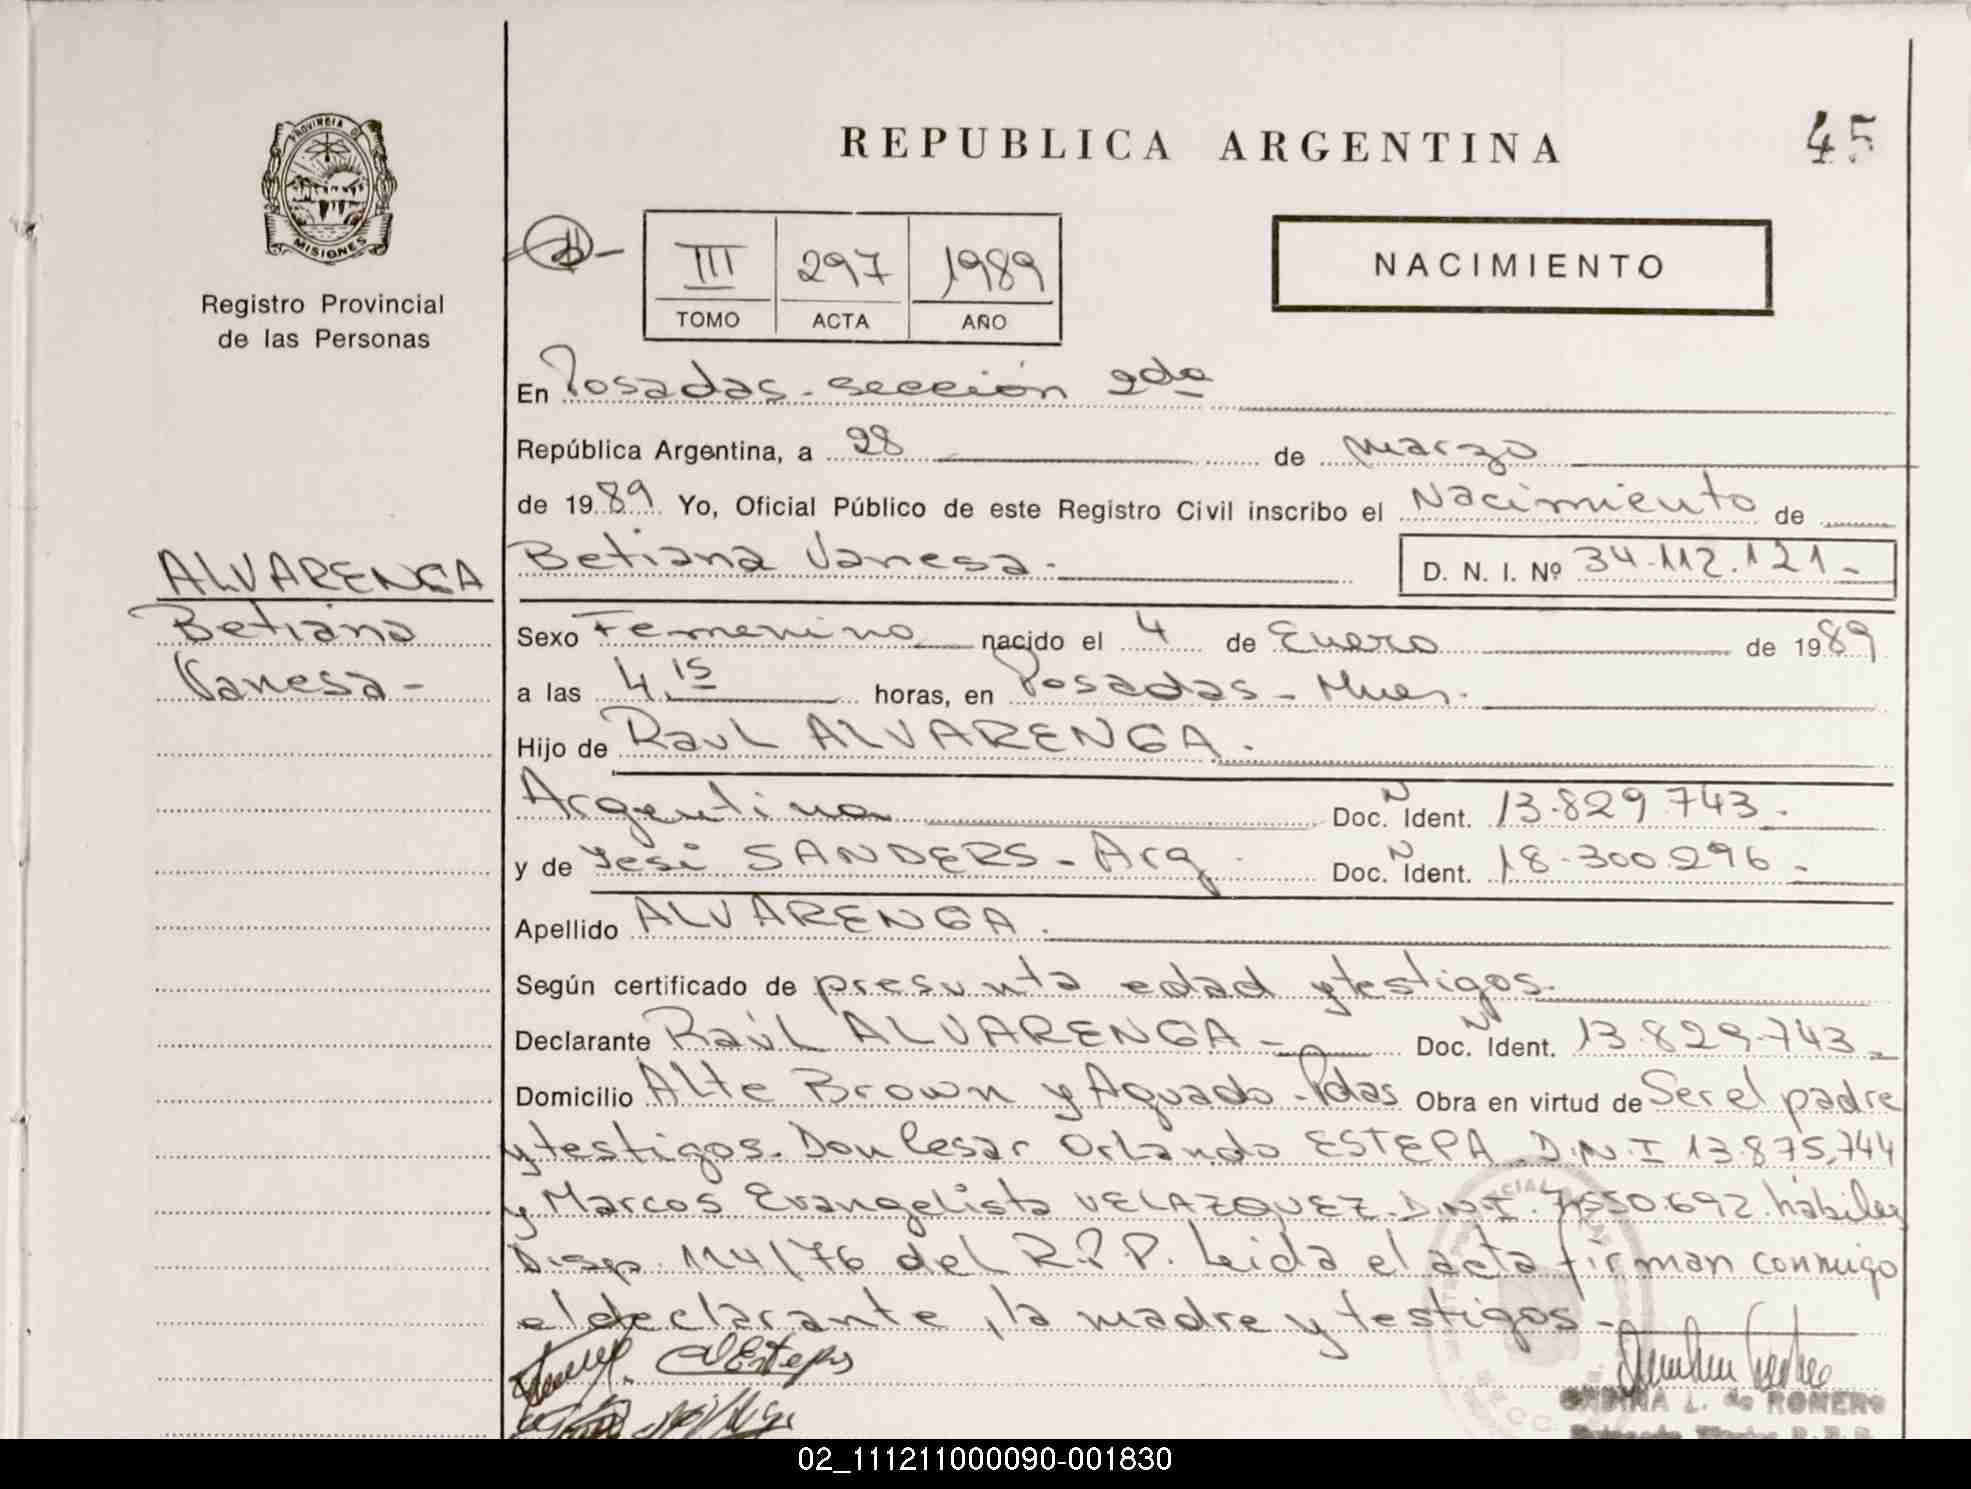 REPUBLICA ARGENTINA
45
PROVINCIA DE
MISIONES
Registro Provincial
de las Personas
III 297 1989
TOMO ACTA AÑO
NACIMIENTO
En Posadas - sección 2da
República Argentina, a 28 de marzo
de 1989 Yo, Oficial Público de este Registro Civil inscribo el Nacimiento de
ALVARENGA
Betiana
Vanesa -
Betiana Vanesa. D. N. I. Nº 34.112.121 -
Sexo Femenino nacido el 4 de Enero de 1989
a las 4.15 horas, en Posadas - Mnes.
Hijo de Raul ALVARENGA.
Argentina Doc. N Ident. 13.829.743 -
y de Yesi SANDERS - Arg. Doc. N Ident. 18.300.296 -
Apellido ALVARENGA.
Según certificado de presunta edad y testigos.
Declarante Raúl ALVARENGA - Doc. N Ident. 13.829.743 -
Domicilio Alte Brown y Aguado - Pdas Obra en virtud de Ser el padre
y testigos. Don Cesar Orlando ESTEPA. D.N.I 13.875.744
y Marcos Evangelista VELAZQUEZ. D.N.I. 7.550.692. hábiles
Disp. 114/76 del R.P.P. Leida el acta firman conmigo
el declarante, la madre y testigos -
ONDINA L. de ROMERO
02_111211000090-001830